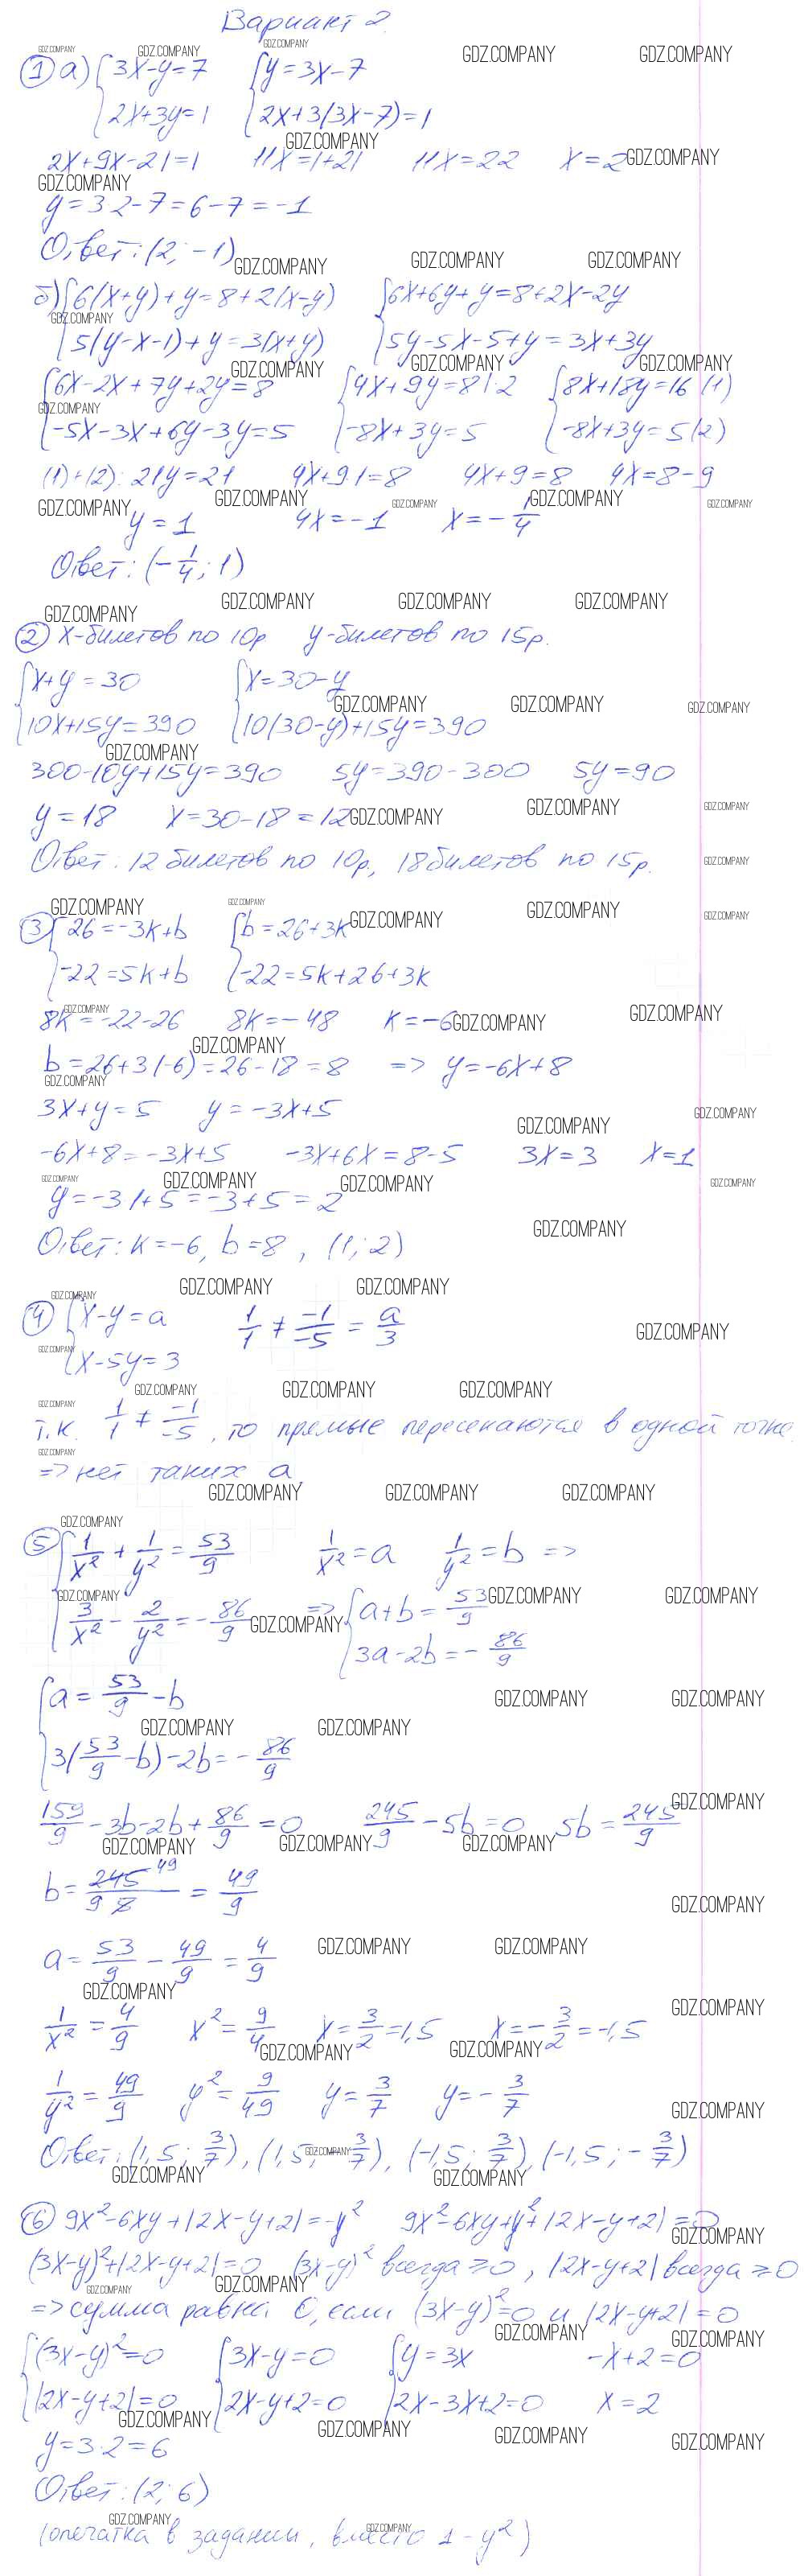 Вариант 2.
① а) { 3x-y=7   { y=3x-7
{ 2x+3y=1   { 2x+3(3x-7)=1
2x+9x-21=1   11x=1+21   11x=22   x=2
y=3·2-7=6-7=-1
Ответ: (2; -1)
б) { 6(x+y)+y=8+2(x-y)   { 6x+6y+y=8+2x-2y
{ 5(y-x-1)+y=3(x+y)   { 5y-5x-5+y=3x+3y
{ 6x-2x+7y+2y=8   { 4x+9y=8 |·2   { 8x+18y=16 (1)
{ -5x-3x+6y-3y=5   { -8x+3y=5   { -8x+3y=5 (2)
(1)+(2): 21y=21   4x+9·1=8   4x+9=8   4x=8-9
y=1   4x=-1   x=-1/4
Ответ: (-1/4; 1)
② x-билетов по 10р   y-билетов по 15р.
{ x+y=30   { x=30-y
{ 10x+15y=390   { 10(30-y)+15y=390
300-10y+15y=390   5y=390-300   5y=90
y=18   x=30-18=12
Ответ: 12 билетов по 10р, 18 билетов по 15р.
③ { 26=-3k+b   { b=26+3k
{ -22=5k+b   { -22=5k+26+3k
8k=-22-26   8k=-48   k=-6
b=26+3(-6)=26-18=8   => y=-6x+8
3x+y=5   y=-3x+5
-6x+8=-3x+5   -3x+6x=8-5   3x=3   x=1
y=-3·1+5=-3+5=2
Ответ: k=-6, b=8, (1; 2)
④ { x-y=a   1/1 ≠ -1/-5 = a/3
{ x-5y=3
т.к. 1/1 ≠ -1/-5, то прямые пересекаются в одной точке
=> нет таких a
⑤ { 1/x² + 1/y² = 53/9   1/x²=a   1/y²=b =>
{ 3/x² - 2/y² = -86/9   => { a+b=53/9
{ 3a-2b=-86/9
{ a=53/9-b
{ 3(53/9-b)-2b=-86/9
159/9-3b-2b+86/9=0   245/9-5b=0   5b=245/9
b=245/9·5 = 49/9
a=53/9-49/9=4/9
1/x²=4/9   x²=9/4   x=3/2=1,5   x=-3/2=-1,5
1/y²=49/9   y²=9/49   y=3/7   y=-3/7
Ответ: (1,5; 3/7), (1,5; -3/7), (-1,5; 3/7), (-1,5; -3/7)
⑥ 9x²-6xy+|2x-y+2|=-y²   9x²-6xy+y²+|2x-y+2|=0
(3x-y)²+|2x-y+2|=0   (3x-y)² всегда ≥0, |2x-y+2| всегда ≥0
=> сумма равна 0, если (3x-y)²=0 и |2x-y+2|=0
{ (3x-y)²=0   { 3x-y=0   { y=3x   -x+2=0
{ |2x-y+2|=0   { 2x-y+2=0   { 2x-3x+2=0   x=2
y=3·2=6
Ответ: (2; 6)
(опечатка в задании, вместо 1 -y²)
GDZ.COMPANY